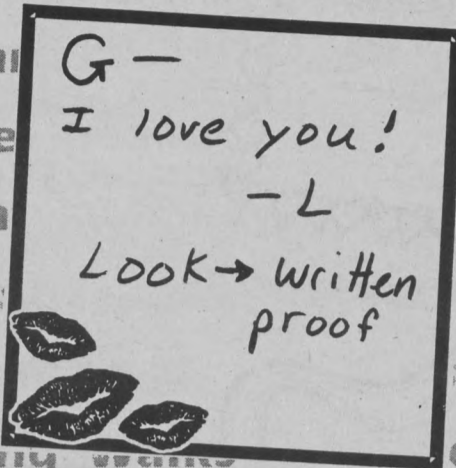 G —
I love you!
- L
Look → written
proof